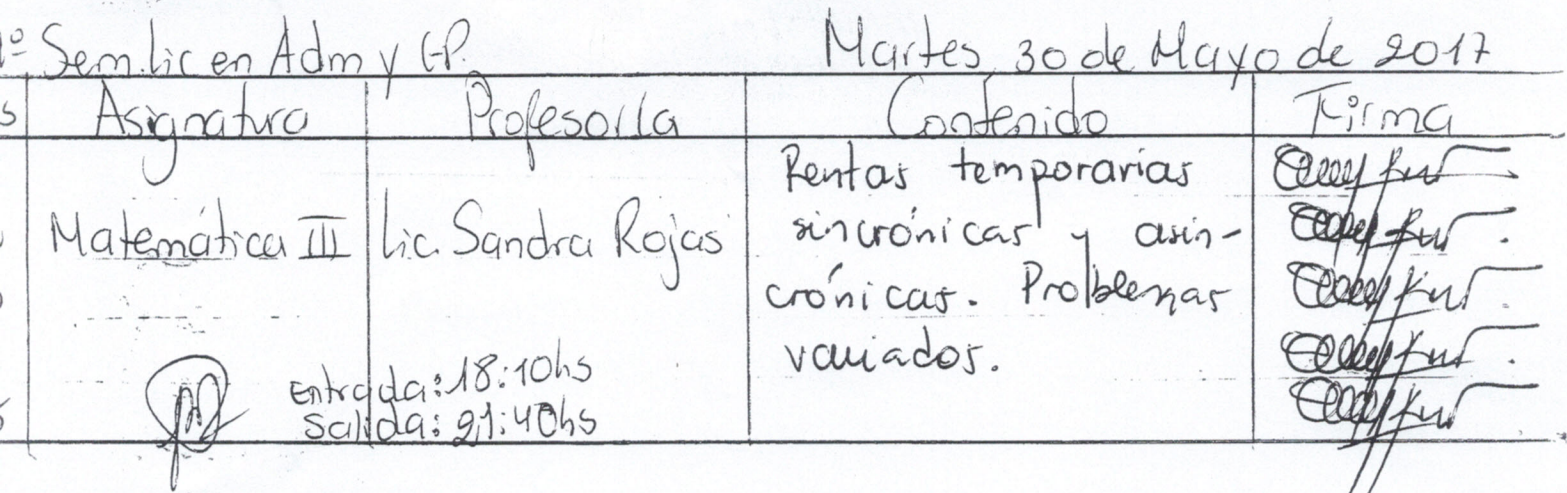 1º Sem. Lic en Adm y GP. Martes, 30 de Mayo de 2017
s Asignatura Profesor/a Contenido Firma
Rentas temporarias
Matemática III Lic. Sandra Rojas sincrónicas y asin-
crónicas. Problemas
variados.
Entrada: 18:10hs
Salida: 21:40hs